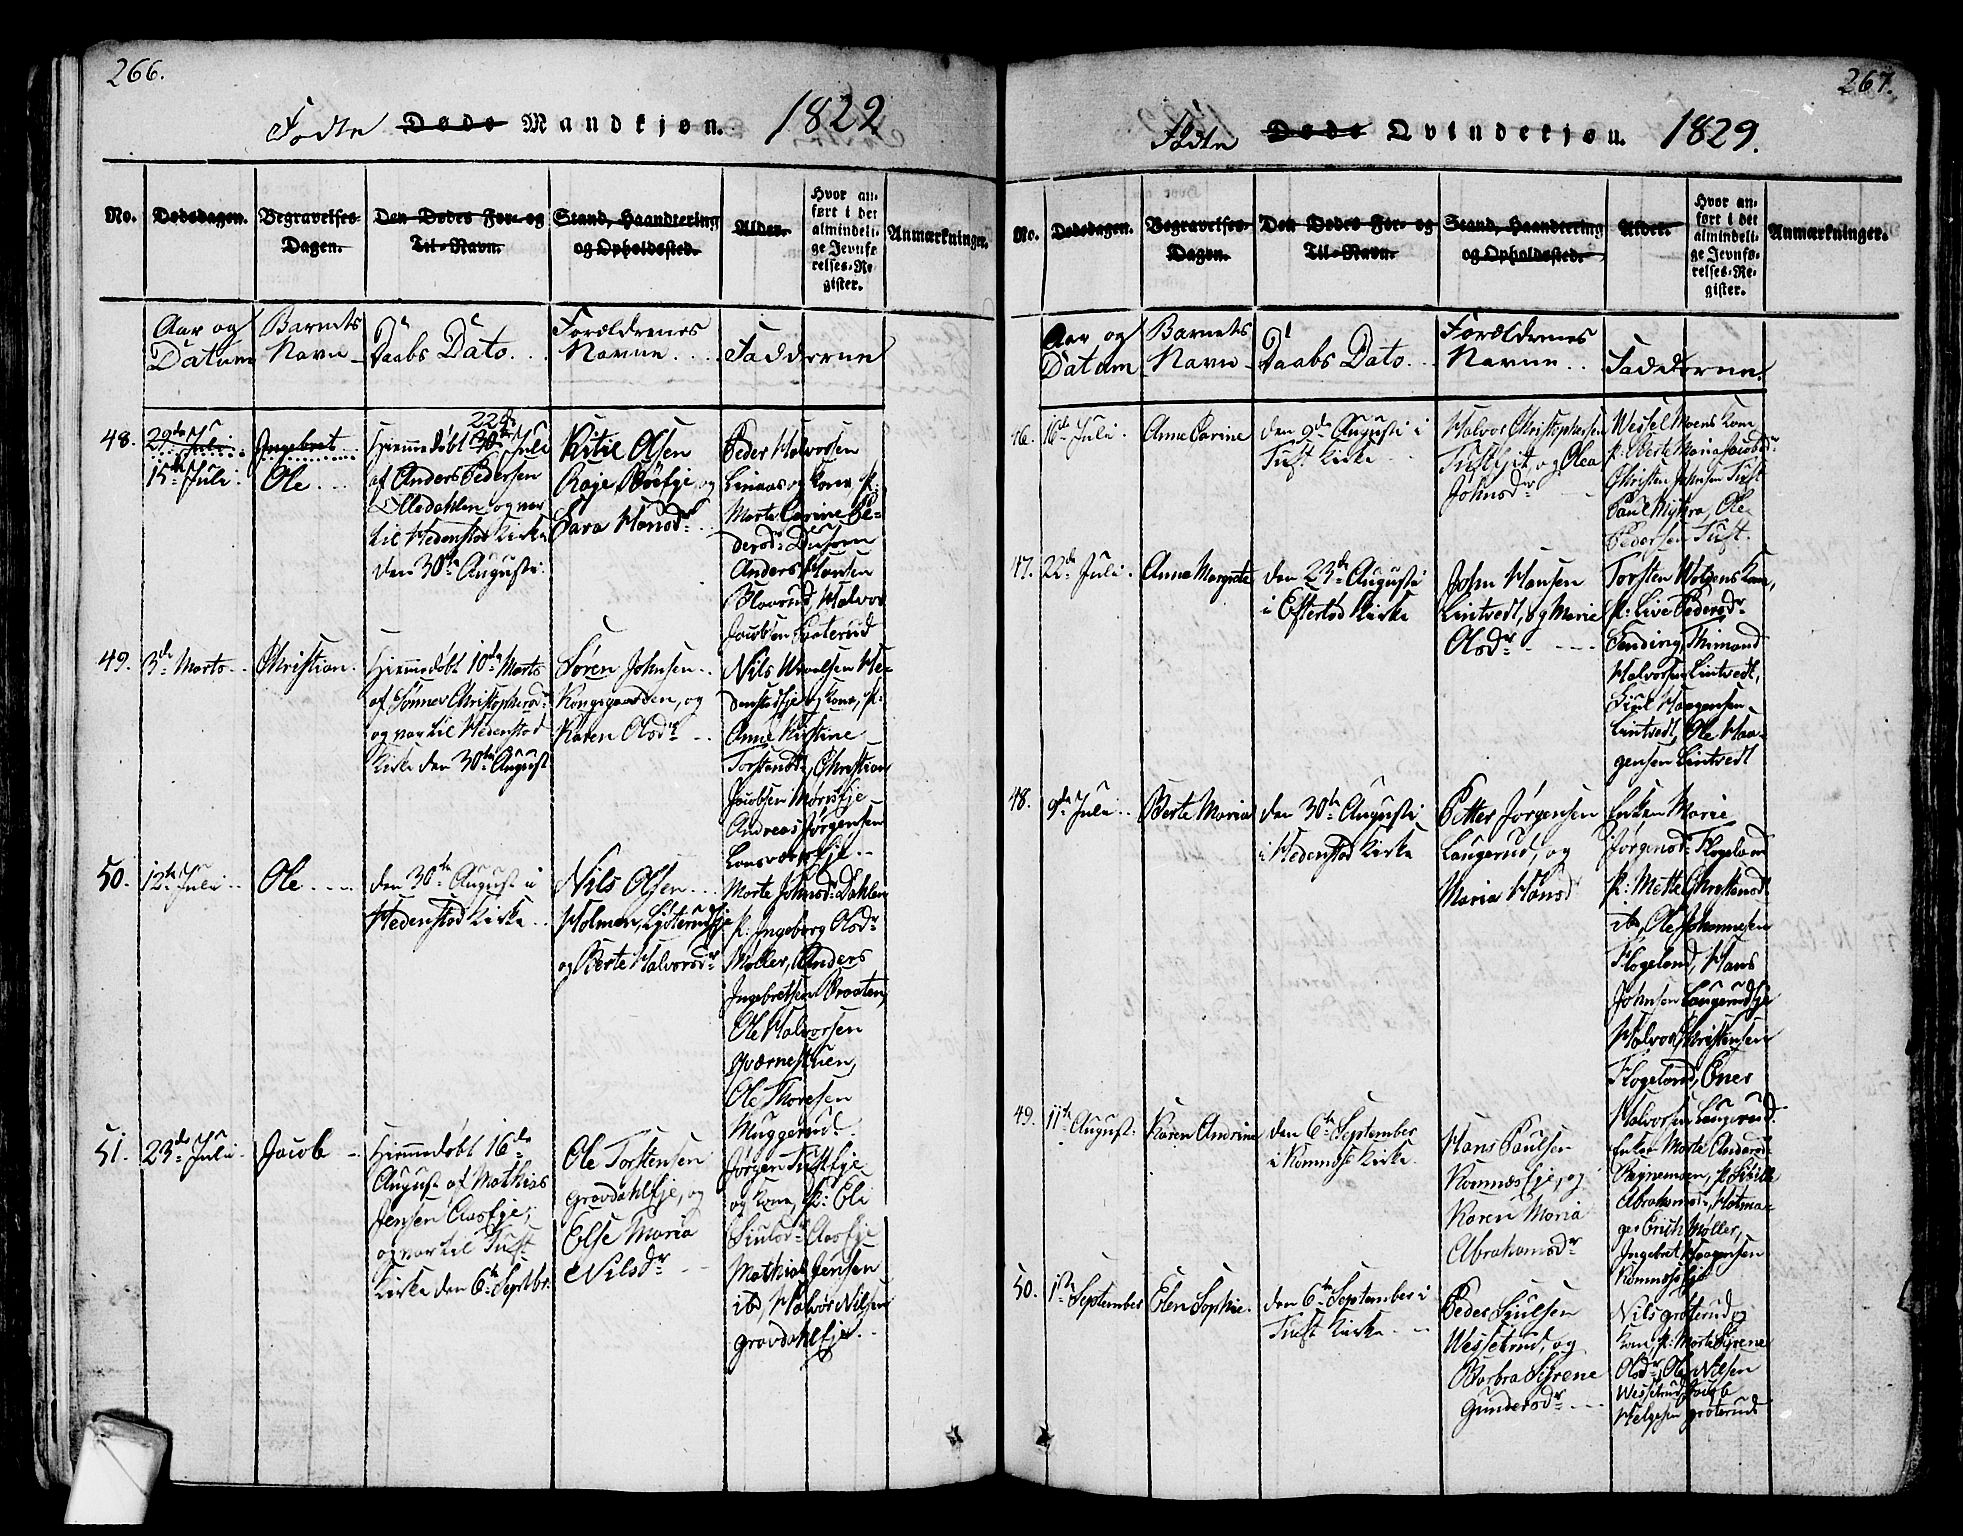 266.
Fødte Døde Mandkjøn. 1822
No.
Dødsdagen.
Begravelses-
Dagen.
Den Dødes For- og
Til-Navn.
Stand, Haandtering
og Opholdssted.
Alder.
Hvor an-
ført i det
almindeli-
ge Jevnfø-
relses-Re-
gister.
Anmærkninger.
Aar og
Datum
Barnets
Navn
Daabs Dato.
Forældrenes
Navne
Fadderne
48.
29de Juli
15de Juli.
Ingebret
Ole
22de
Hjemmedøbt 30te Juli
af Anders Pedersen
Olledahlen og var
til Hedenstad Kirke
den 30te Augusti.
Kitil Olsen
Raje Böefje, og
Sara Hansdr
Peder Halvorsen
Linaas og Kone, p:
Marte Carine Pe-
dersdr: Dusom
Anders Hansen
Haarud, Halvor
Jacobsen Saaterud
49.
3de Marts
Christian.
Hjemmedøbt 10de Marts
af Sønnev Christophersdr
og var til Hedenstad
Kirke den 30te August
Søren Johnsen
Kongsgaarden, og
Karen Olsdr
Nils Hvaalsen He-
denstadeje og Kone, p:
Anne Kirstine
Torstensdr, Christian
Jacobsen Mørnsfje
Andreas Jørgensen
Lonsværnseje
50.
12te Juli
Ole
den 30te August i
Hedenstad Kirke
Nils Olsen
Holmen, Ljøterudeje
og Berte Halvorsdr
Marte Johnsdr: Dahlen
p: Ingeborg Olsdr
Møller, Anders
Ingebretsen Braaten,
Ole Halvorsen
Qværnestuen,
Ole Thoresen
Muggerud.
51.
23de Juli
Jacob
Hjemmedøbt 16de
August af Mathias
Jensen Aaseje,
og var til Tuft
Kirke den 6te Septbr.
Ole Torstensen
Gravdahleje, og
Else Maria
Nilsdr
Jørgen Tufteje
og Kone, p: Eli
Siulsdr Aaseje
Mathias Jensen
ibd, Halvor Nilsen
Gravdahleje
267.
Fødte Døde Qvindekjøn. 1829.
No.
Dødsdagen.
Begravelses-
Dagen.
Den Dødes For- og
Til-Navn.
Stand, Haandtering
og Opholdssted.
Alder.
Hvor an-
ført i det
almindeli-
ge Jevnfø-
relses-Re-
gister.
Anmærkninger.
Aar og
Datum
Barnets
Navn
Daabs Dato
Forældrenes
Navne
Fadderne.
46.
16de Juli.
Anne Carine
den 9de Augusti i
Tuft Kirke
Halvor Christophersen
Tufteje, og Olea
Johnsdr
Wessel Moens Kone
p: Berte Maria Jacobsdr
Christen Johnsen Tuft
Paul Myhra, Ole
Pedersen Tuft.
47.
22de Juli.
Anne Margrete
den 23de Augusti
i Efteløt Kirke
John Hansen
Lintvedt, og Marie
Olsdr
Torsten Wolgens Kone,
p: Live Pedersdr
Sending, Thimand
Halvorsen Lintvedt,
Siul Haagensen
Lintvedt, Ole Haa-
gensen Lintvedt
48.
9de Juli
Berte Maria
den 30te Augusti
i Hedenstad Kirke
Petter Jørgensen
Laugerud, og
Maria Hansd
Enken Marie
Jørgensdr Flogeland
p: Mette Christensdr
ibd, Ole Johannesen
Flogeland, Hans
Johnsen Laugerudeje
Halvor Christensen
Flogeland, Ener
Halvorsen Laugerud.
49.
11te August.
Karen Andrine
den 6te September
i Komnes Kirke
Hans Paulsen
Komneseje, og
Karen Maria
Abrahamsdr
Enken Marte Andersdr
Bagnemoen, p: Sibille
Abrahamsdr, Hatma-
ger Erich Møller,
Ingebret Haagensen
Komneseje
50.
1ste September
Elen Sophie.
den 6te September i
Tuft Kirke
Peder Siulsen
Wesselrud, og
Barbra Syrene
Gundersdr
Nils Grøterud og
Kone, p: Marte Syrene
Olsdr, Ole Nilsen
Wesselrud, Jacob
Helgesen Grøterud